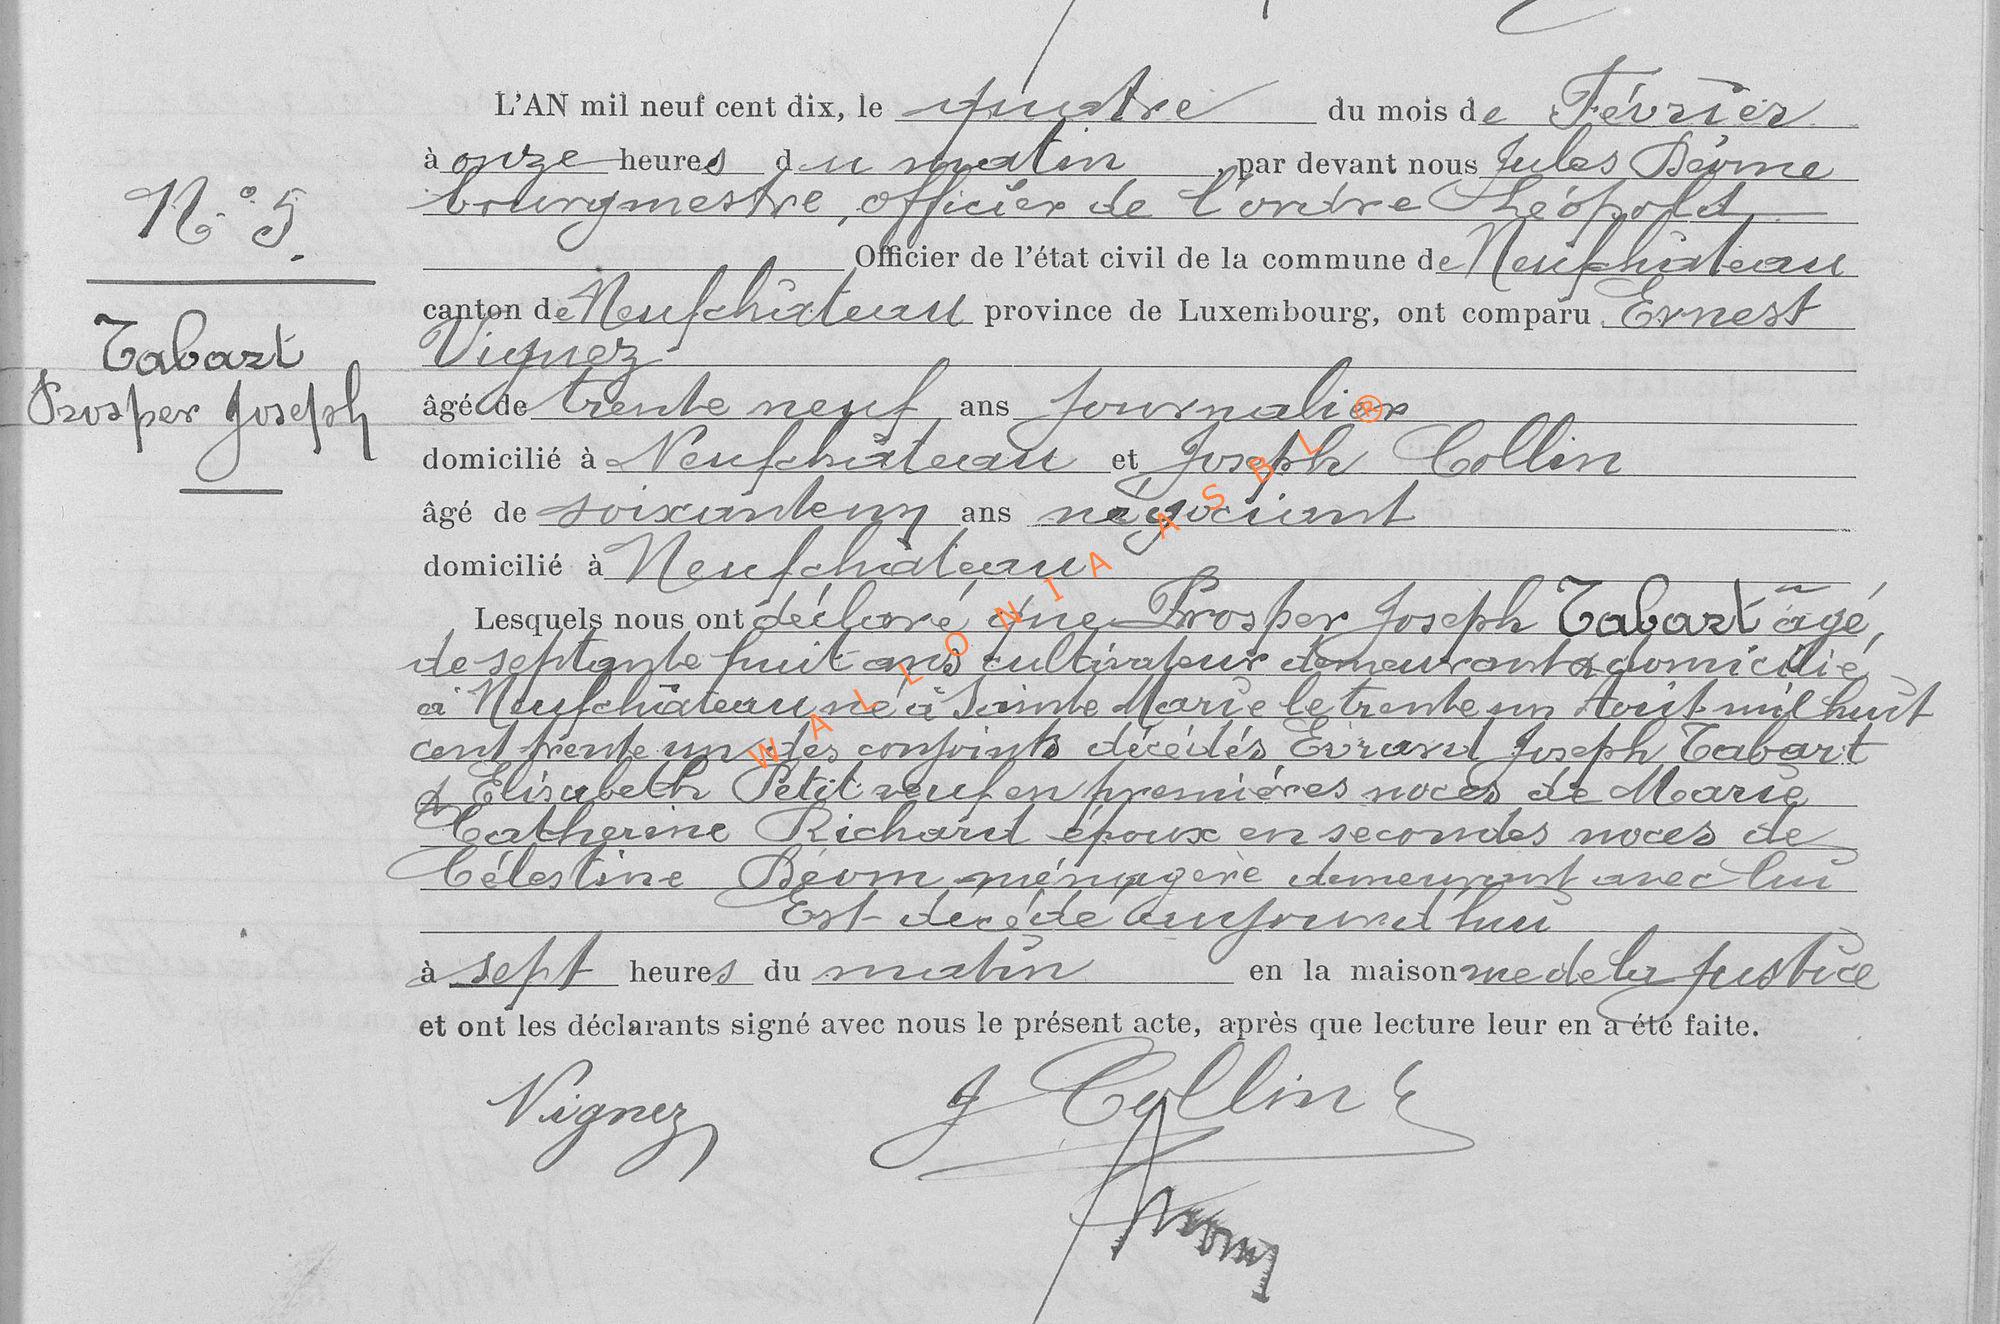 L'AN mil neuf cent dix, le quatre du mois de Février
à onze heures du matin, par devant nous Jules
bourgmestre, officier de l'ordre Léopold
N.° 5.
Officier de l'état civil de la commune de Neufchâteau
canton de Neufchâteau province de Luxembourg, ont comparu Ernest
Vignez
Tabart
Prosper Joseph
âgé de trente neuf ans journalier
domicilié à Neufchâteau et Joseph Collin
âgé de soixante un ans négociant
domicilié à Neufchâteau
Lesquels nous ont déclaré que Prosper Joseph Tabart âgé,
de septante huit ans cultivateur demeurant & domicilié
à Neufchâteau né à Sainte Marie le trente un Août mil huit
cent trente un des conjoints décédés Evrard Joseph Tabart
& Elisabeth Petit veuf en premières noces de Marie
Catherine Richard époux en secondes noces de
Célestine Déom ménagère demeurant avec lui
Est décédé aujourd'hui
à sept heures du matin en la maison rue de la Justice
et ont les déclarants signé avec nous le présent acte, après que lecture leur en a été faite.
Vignez J Collin
WALLONIA ASBL ®